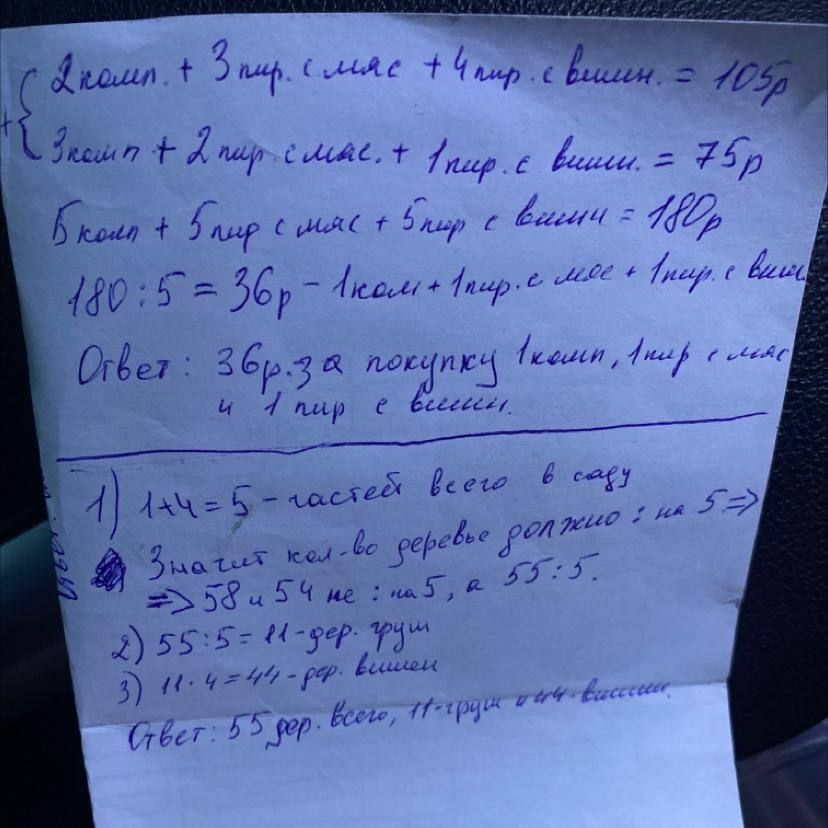 2 комп. + 3 пир. с мяс + 4 пир. с вишн. = 105р
+{
3 комп + 2 пир. с мяс. + 1 пир. с вишн. = 75р
5 комп + 5 пир с мяс + 5 пир с вишн = 180р
180 : 5 = 36р - 1 ком + 1 пир. с мяс + 1 пир. с виш.
Ответ: 36р. за покупку 1 комп, 1 пир с мяс
и 1 пир с вишн.
1) 1+4=5 - частей всего в саду
Значит кол-во деревье должно : на 5 =>
=> 58 и 54 не : на 5, а 55:5.
2) 55:5 = 11 - дер. груш
3) 11·4=44 - дер. вишен
Ответ: 55 дер. всего, 11-груш и 44-вишни.